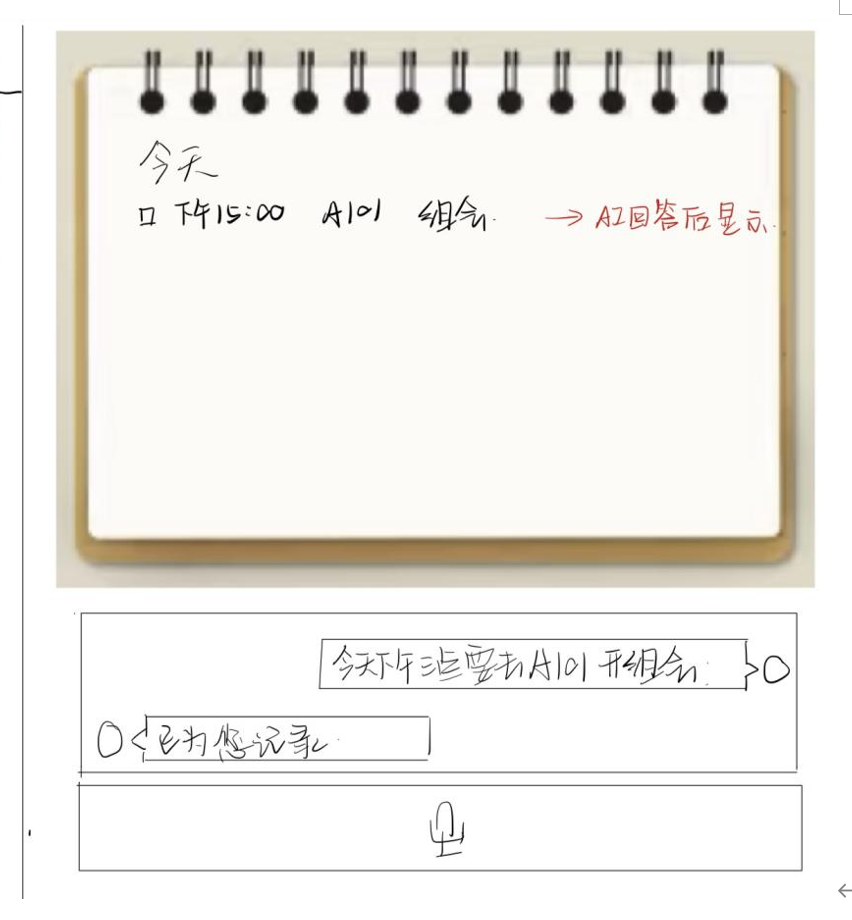 今天
口 下午15:00 A101 组会 → AI回答后显示.
今天下午三点要去A101开组会.
已为您记录.